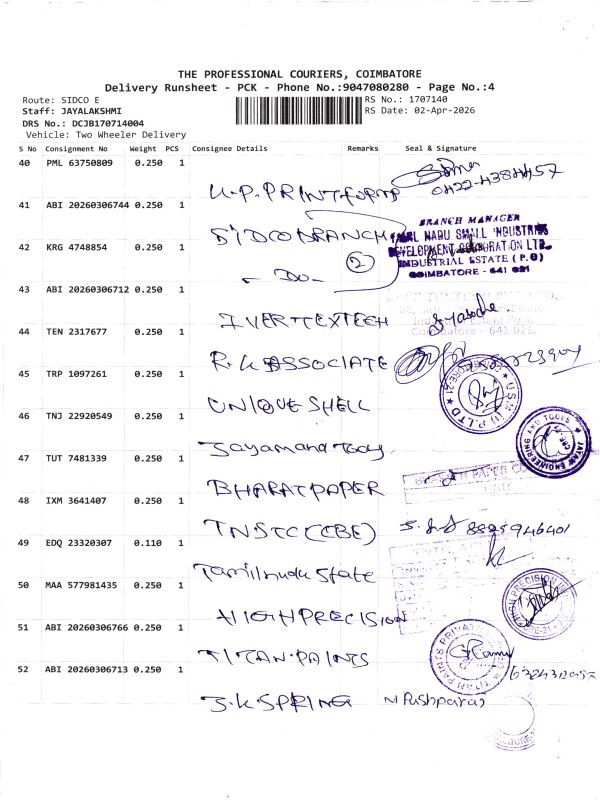 THE PROFESSIONAL COURIERS, COIMBATORE
Delivery Runsheet - PCK - Phone No.:9047080280 - Page No.:4
Route: SIDCO E
RS No.: 1707140
Staff: JAYALAKSHMI
RS Date: 02-Apr-2026
DRS No.: DCJB170714004
Vehicle: Two Wheeler Delivery
S No Consignment No Weight PCS Consignee Details Remarks Seal & Signature
40 PML 63750809 0.250 1
U.P.PRINT
41 ABI 20260306744 0.250 1
SIDCO BRANCH
BRANCH MANAGER
TAMIL NADU SMALL INDUSTRIES
DEVELOPMENT CORPORATION LTD.
INDUSTRIAL ESTATE (P.O)
COIMBATORE - 641 021
42 KRG 4748854 0.250 1
- Do - 2
43 ABI 20260306712 0.250 1
IVERTEXTECH
Coimbatore - 641 021.
44 TEN 2317677 0.250 1
R.K ASSOCIATE
45 TRP 1097261 0.250 1
UNIQUE SHELL
46 TNJ 22920549 0.250 1
47 TUT 7481339 0.250 1
BHARAT PAPER
48 IXM 3641407 0.250 1
TNSTC (CBE)
8825946401
49 EDQ 23320307 0.110 1
Tamilnadu State
50 MAA 577981435 0.250 1
HIGH PRECISION
51 ABI 20260306766 0.250 1
TITAN PAINTS
52 ABI 20260306713 0.250 1
J.K SPRING
M Pushparaj